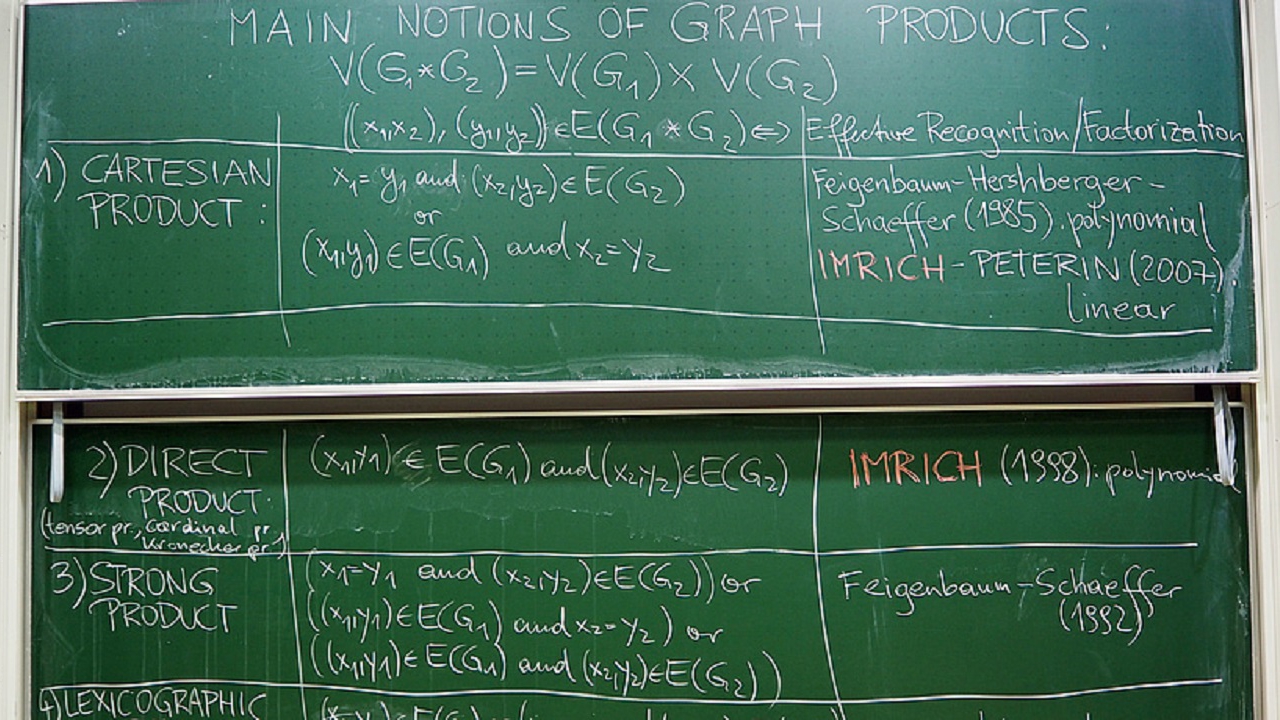 MAIN NOTIONS OF GRAPH PRODUCTS:
V(G₁*G₂)=V(G₁)×V(G₂)
((x₁,x₂),(y₁,y₂))∈E(G₁*G₂)⇔
Effective Recognition/Factorization
1) CARTESIAN
PRODUCT:
x₁=y₁ and (x₂,y₂)∈E(G₂)
or
(x₁,y₁)∈E(G₁) and x₂=y₂
Feigenbaum-Hershberger-
Schaeffer (1985).polynomial
IMRICH-PETERIN(2007).
linear
2) DIRECT
PRODUCT.
(tensor pr., Cardinal pr.
Kronecker pr.)
(x₁,y₁)∈E(G₁) and (x₂,y₂)∈E(G₂)
IMRICH (1998): polynomial
3) STRONG
PRODUCT
(x₁=y₁ and (x₂,y₂)∈E(G₂)) or
((x₁,y₁)∈E(G₁) and x₂=y₂) or
((x₁,y₁)∈E(G₁) and (x₂,y₂)∈E(G₂))
Feigenbaum-Schaeffer
(1992)
4) LEXICOGRAPHIC